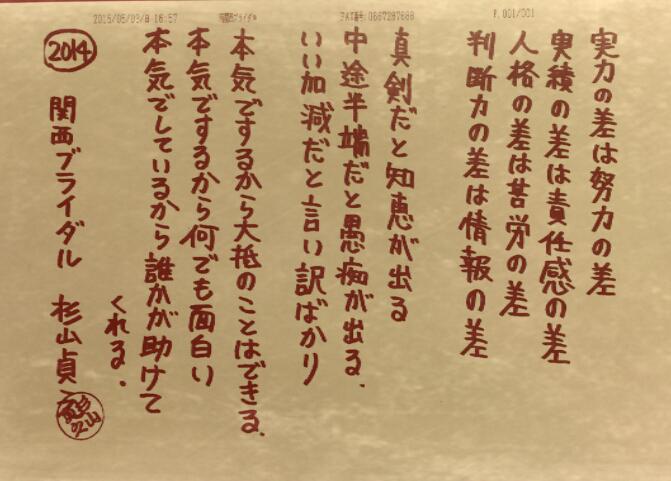 2015/05/03/日 16:57 関西ブライダル FAX番号:0667287688 P.001/001
実力の差は努力の差
実積の差は責任感の差
人格の差は苦労の差
判断力の差は情報の差
真剣だと知恵が出る
中途半端だと愚痴が出る、
いい加減だと言い訳ばかり
本気でするから大抵のことはできる、
本気でするから何でも面白い
本気でしているから誰かが助けて
くれる、
2014 関西ブライダル 杉山貞